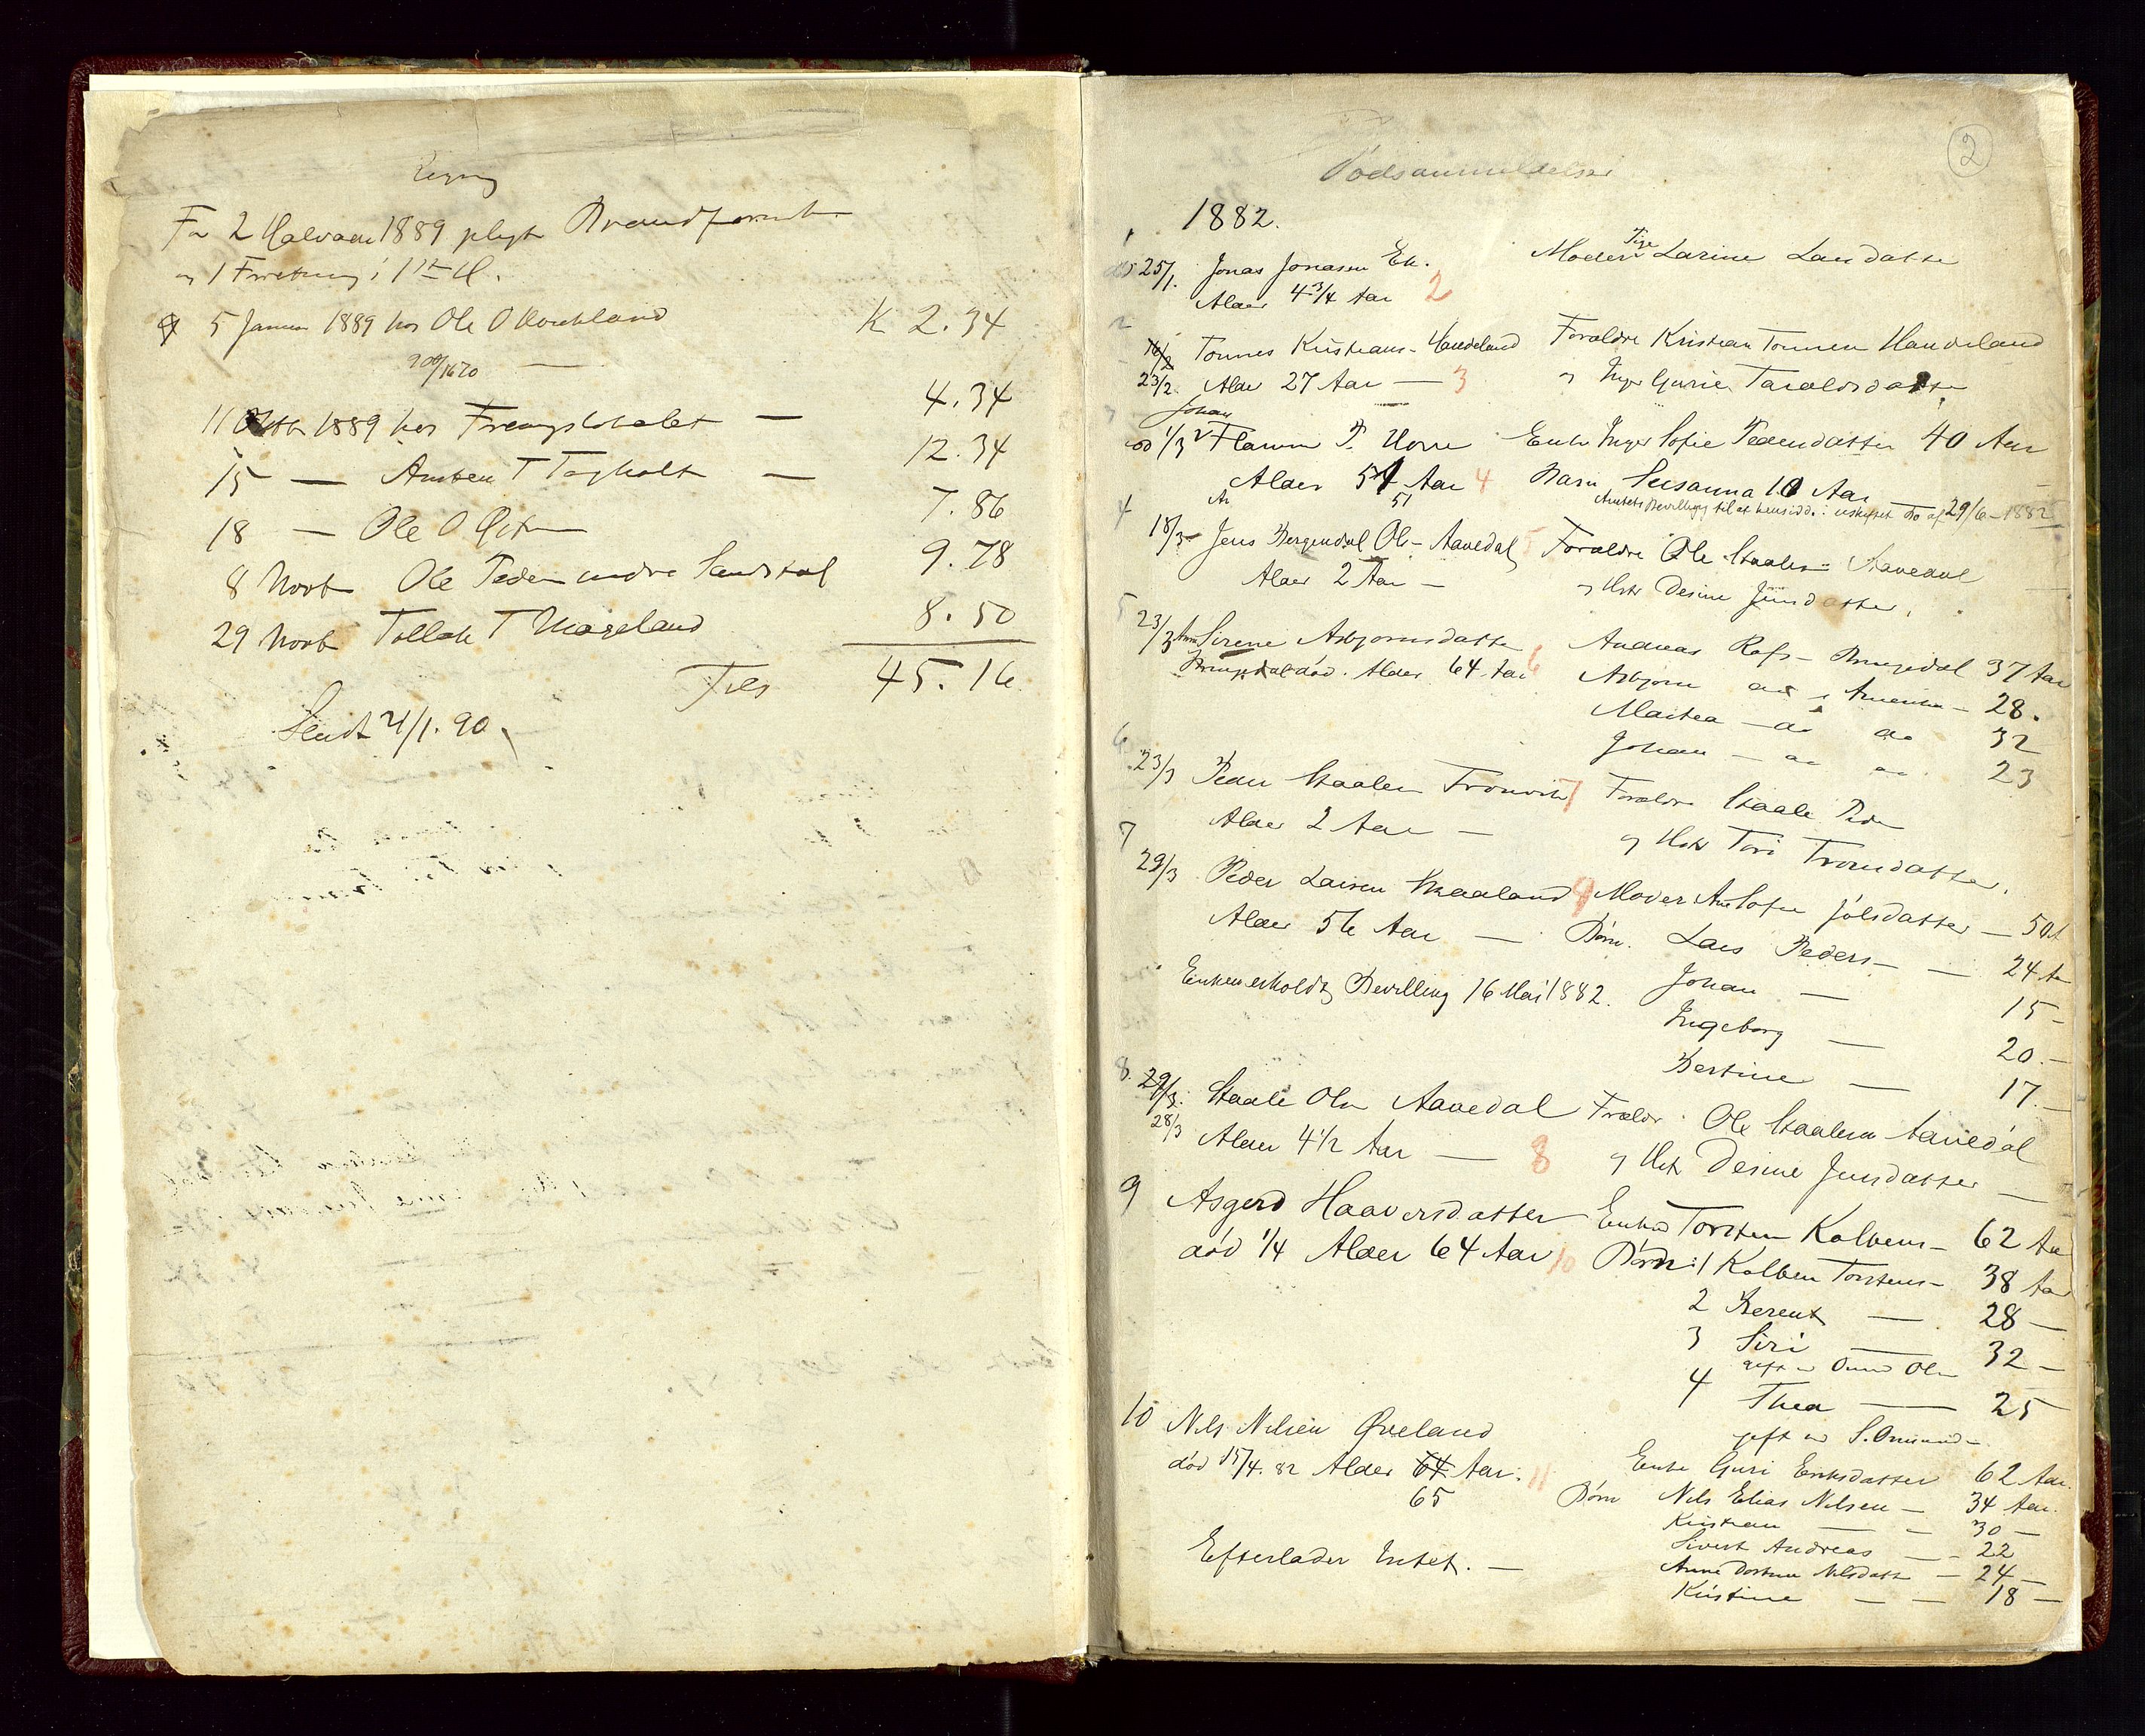 Regning
For 2 Halvaar 1889 Brandforsik
og 1 Forretning i 1ste H.
5 Januar 1889 hos Ole O K 2.34
11 Oktb 1889 hos 4.34
15 — T Tagholt — 12.34
18 — Ole O 7.86
8 Novb Ole Peder Sandstøl 9.78
29 Novb Tollak T Mageland 8.50
Tils 45.16
Sendt 21/1. 90.
2
Dødsanmeldelser
1882.
25/1. Jonas Jonasen Ek. Moder Pige Larine Larsdatter
Alder 4 3/4 Aar 2
2
16/2 Tonnes Kristians- Haudeland Forældre Kristian Tonnesen Haudeland
23/2. Alder 27 Aar — 3 og Inger Gurine Taraldsdatter
3 Johan
1/3 Flamm P. Horre Enke Inger Sofie Pedersdatter 40 Aar
Alder 51 Aar 4 Barn Susanna 10 Aar —
51 Amtets Bevilling til at hensidde i uskiftet Bo af 29/6-1882
4
18/3 Jens Bergendal Ols- Aavedal 5 Forældre Ole Staalesen Aavedal
Alder 2 Aar — og Hstr Desine Jensdatter.
5
23/3 Sirene Asbjornsdatter Andreas Rafs- Brusedal 37 Aar
død. Alder 64 Aar 6 Asbjorn do i Amerika — 28.
Martea — do do 32
Johan — do do. 23
6
23/3 Peder Staalesen Fronvik 7 Forældre Staale Peder
Alder 2 Aar — og Hstr Tori Tronsdatter.
7
29/3 Peder Larsen Skaaland 9 Moder Ane Sofie Joelsdatter — 50 A
Alder 56 Aar — Børn. Lars Peders- — 24 A
Enken erholdt Bevilling 16 Mai 1882. Johan — 15 -
Ingeborg — 20. -
Bertine — 17. -
8. 29/3. Staale Olsen Aavedal Forældr. Ole Staalesen Aavedal
28/3 Alder 4 1/2 Aar — 8 og Hstr Desine Jensdatter —
9 Asgerd Haaversdatter Enkem Torsten Kolbens- 62 Aar
død 1/4 Alder 64 Aar 10 Børn: 1 Kolben Torstens- 38 Aar
2 Berent — 28 -
3 Siri — 32 -
gift m Omund Olsen
4 Thea — 25
gift m S. Omunds-
10 Nils Nilsen Øveland
død 15/4. 82 Alder 64 Aar. 11 Enke Guri Eriksdatter 62 Aar.
65 Børn Nils Elias Nilsen — 34 Aar.
Kristian — - 30 -
Sivert Andreas — - 22
Efterlader Intet. — Anne Dortea Nilsdatt — 24 -
Kristine — - 18 -